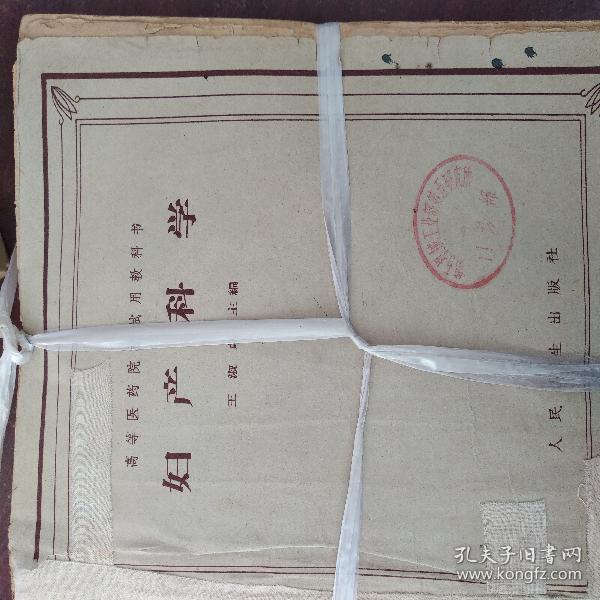 高等医药院 试用教科书
妇产科学
王淑 主编
人民 生出版社
孔夫子旧书网
www.kongfz.com